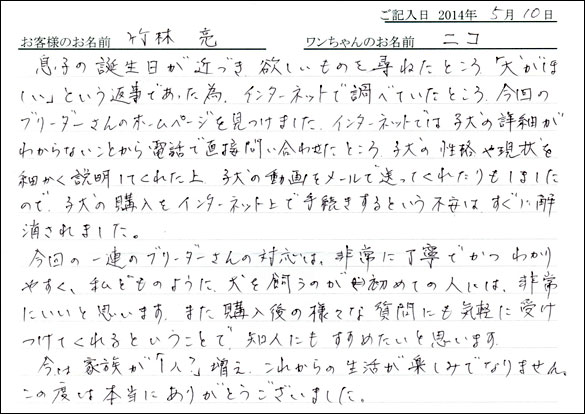 ご記入日 2014年 5月10日
お客様のお名前 竹林 亮 ワンちゃんのお名前 ニコ
息子の誕生日が近づき、欲しいものを尋ねたところ「犬がほ
しい」という返事であった為、インターネットで調べていたところ、今回の
ブリーダーさんのホームページを見つけました。インターネットでは子犬の詳細が
わからないことから電話で直接問い合わせたところ、子犬の性格や現状を
細かく説明してくれた上、子犬の動画をメールで送ってくれたりもしました
ので、子犬の購入をインターネット上で手続きするという不安はすぐに解
消されました。
今回の一連のブリーダーさんの対応は、非常に丁寧でかつわかり
やすく、私どものように、犬を飼うのが初めての人には、非常
にいいと思います。また購入後の様々な質問にも気軽に受け
つけてくれるということで、知人にもすすめたいと思います。
今は家族が「1人?」増え、これからの生活が楽しみでなりません。
この度は本当にありがとうございました。